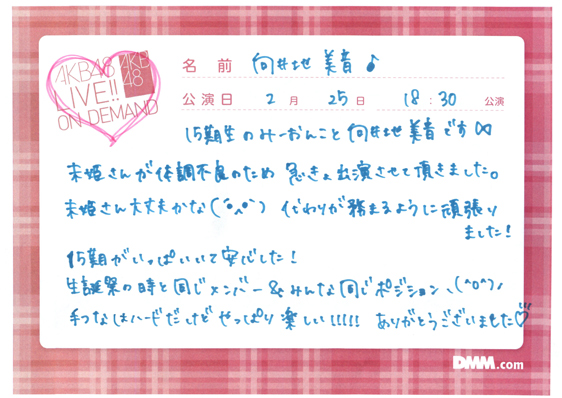 AKB48
LIVE!!
ON DEMAND
AKB
48
名前 向井地 美音♪
公演日 2月 25日 18:30 公演
15期生のみーおんこと向井地美音です
未姫さんが体調不良のため 急きょ出演させて頂きました。
未姫さん大丈夫かな(´•̥ω•̥`) 代わりが務まるように頑張り
ました!
15期がいっぱいいて安心した!
生誕祭の時と同じメンバー&みんな同じポジション、(^o^)ノ
手つなはハードだけどやっぱり楽しい!!!!! ありがとうございました♡
DMM.com